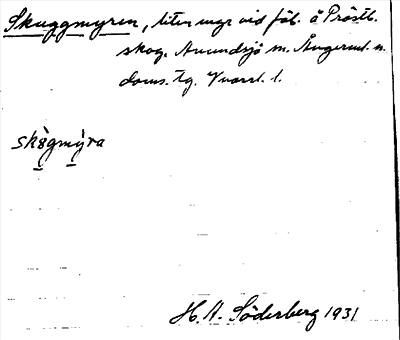 Skuggmyren, liten myr vid fäb. å Prästb.
skog. Anundsjö sn. Ångerml. n.
doms. tg. Vnorrl. l.
skôgmy̆ra
H. A. Söderberg 1931